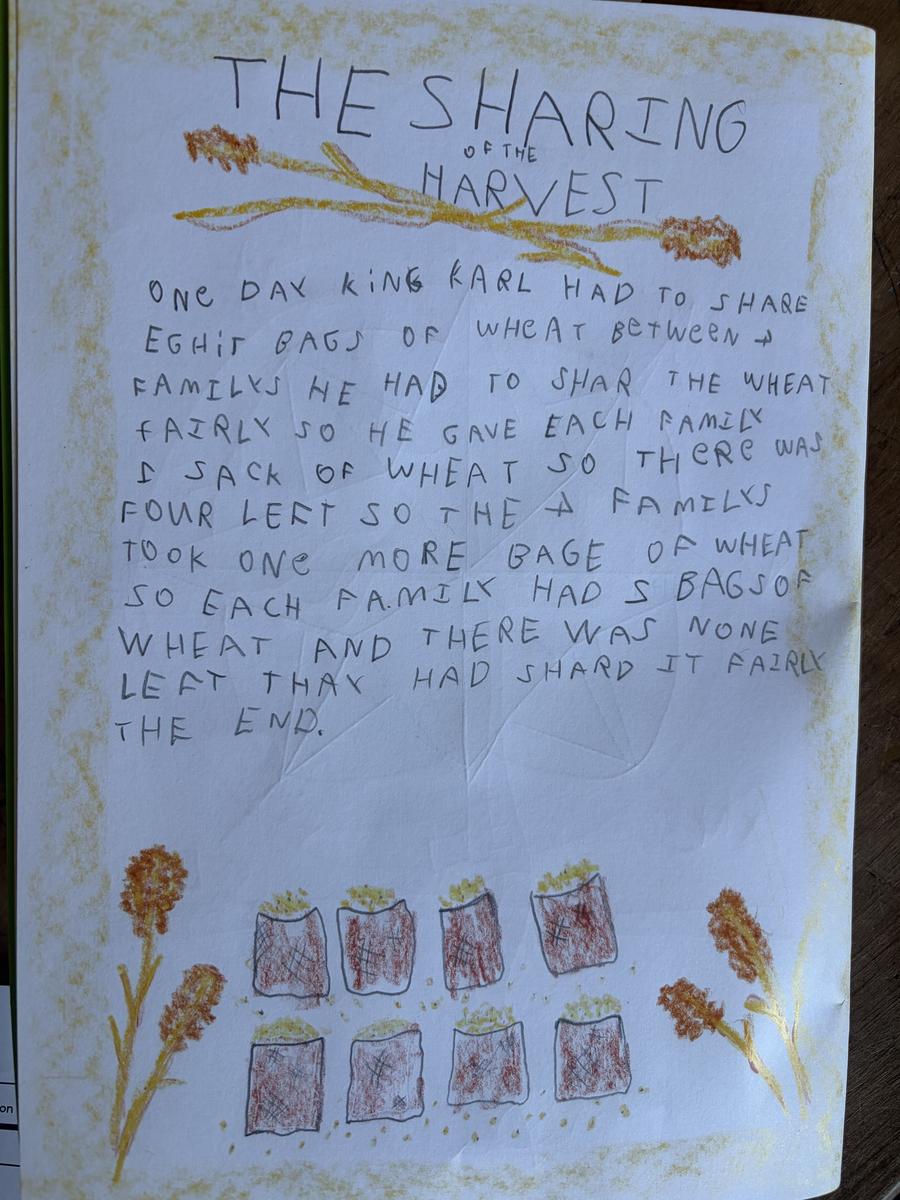 THE SHARING
OF THE
HARVEST
ONe DAY KiNG KARL HAD TO SHARE
EGHiT BAGS OF WHeAT BeTWeeN 4
FAMILYS HE HAD TO SHAR THE WHEAT
FAIRLY SO HE GAVE EACH FAMILY
1 SACK OF WHEAT SO THeRe WAS
FOUR LEFT SO THE 4 FAMILYS
TOOK ONe MORE BAGE OF WHEAT
SO EACH FAMILY HAD 2 BAGS OF
WHEAT AND THERE WAS NONE
LEFT THAY HAD SHARD IT FAIRLY
THE END.
on